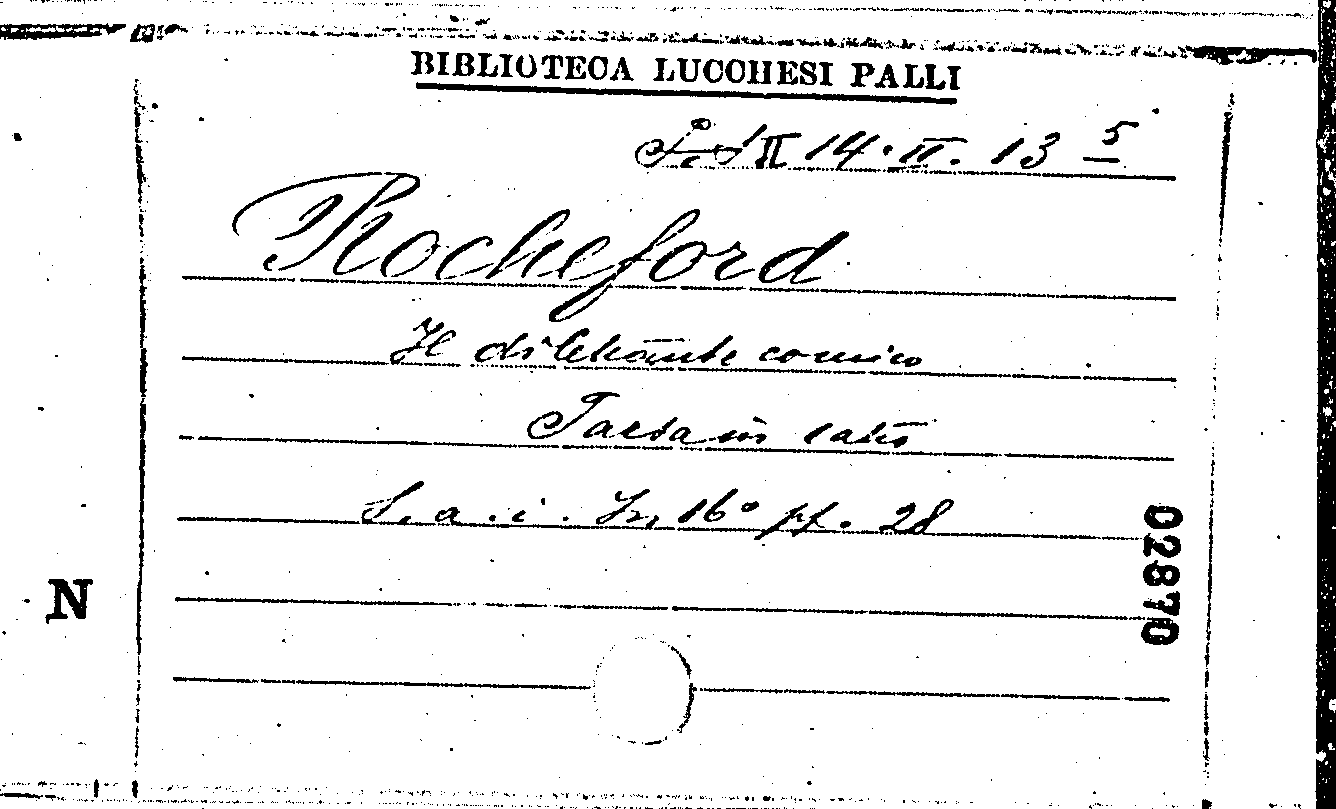 BIBLIOTECA LUCCHESI PALLI
II 14. II. 13 5
Rocheford
Il dilettante comico
Farsa in 1 atto
S. a. i. In 16° pp. 28
02870
N